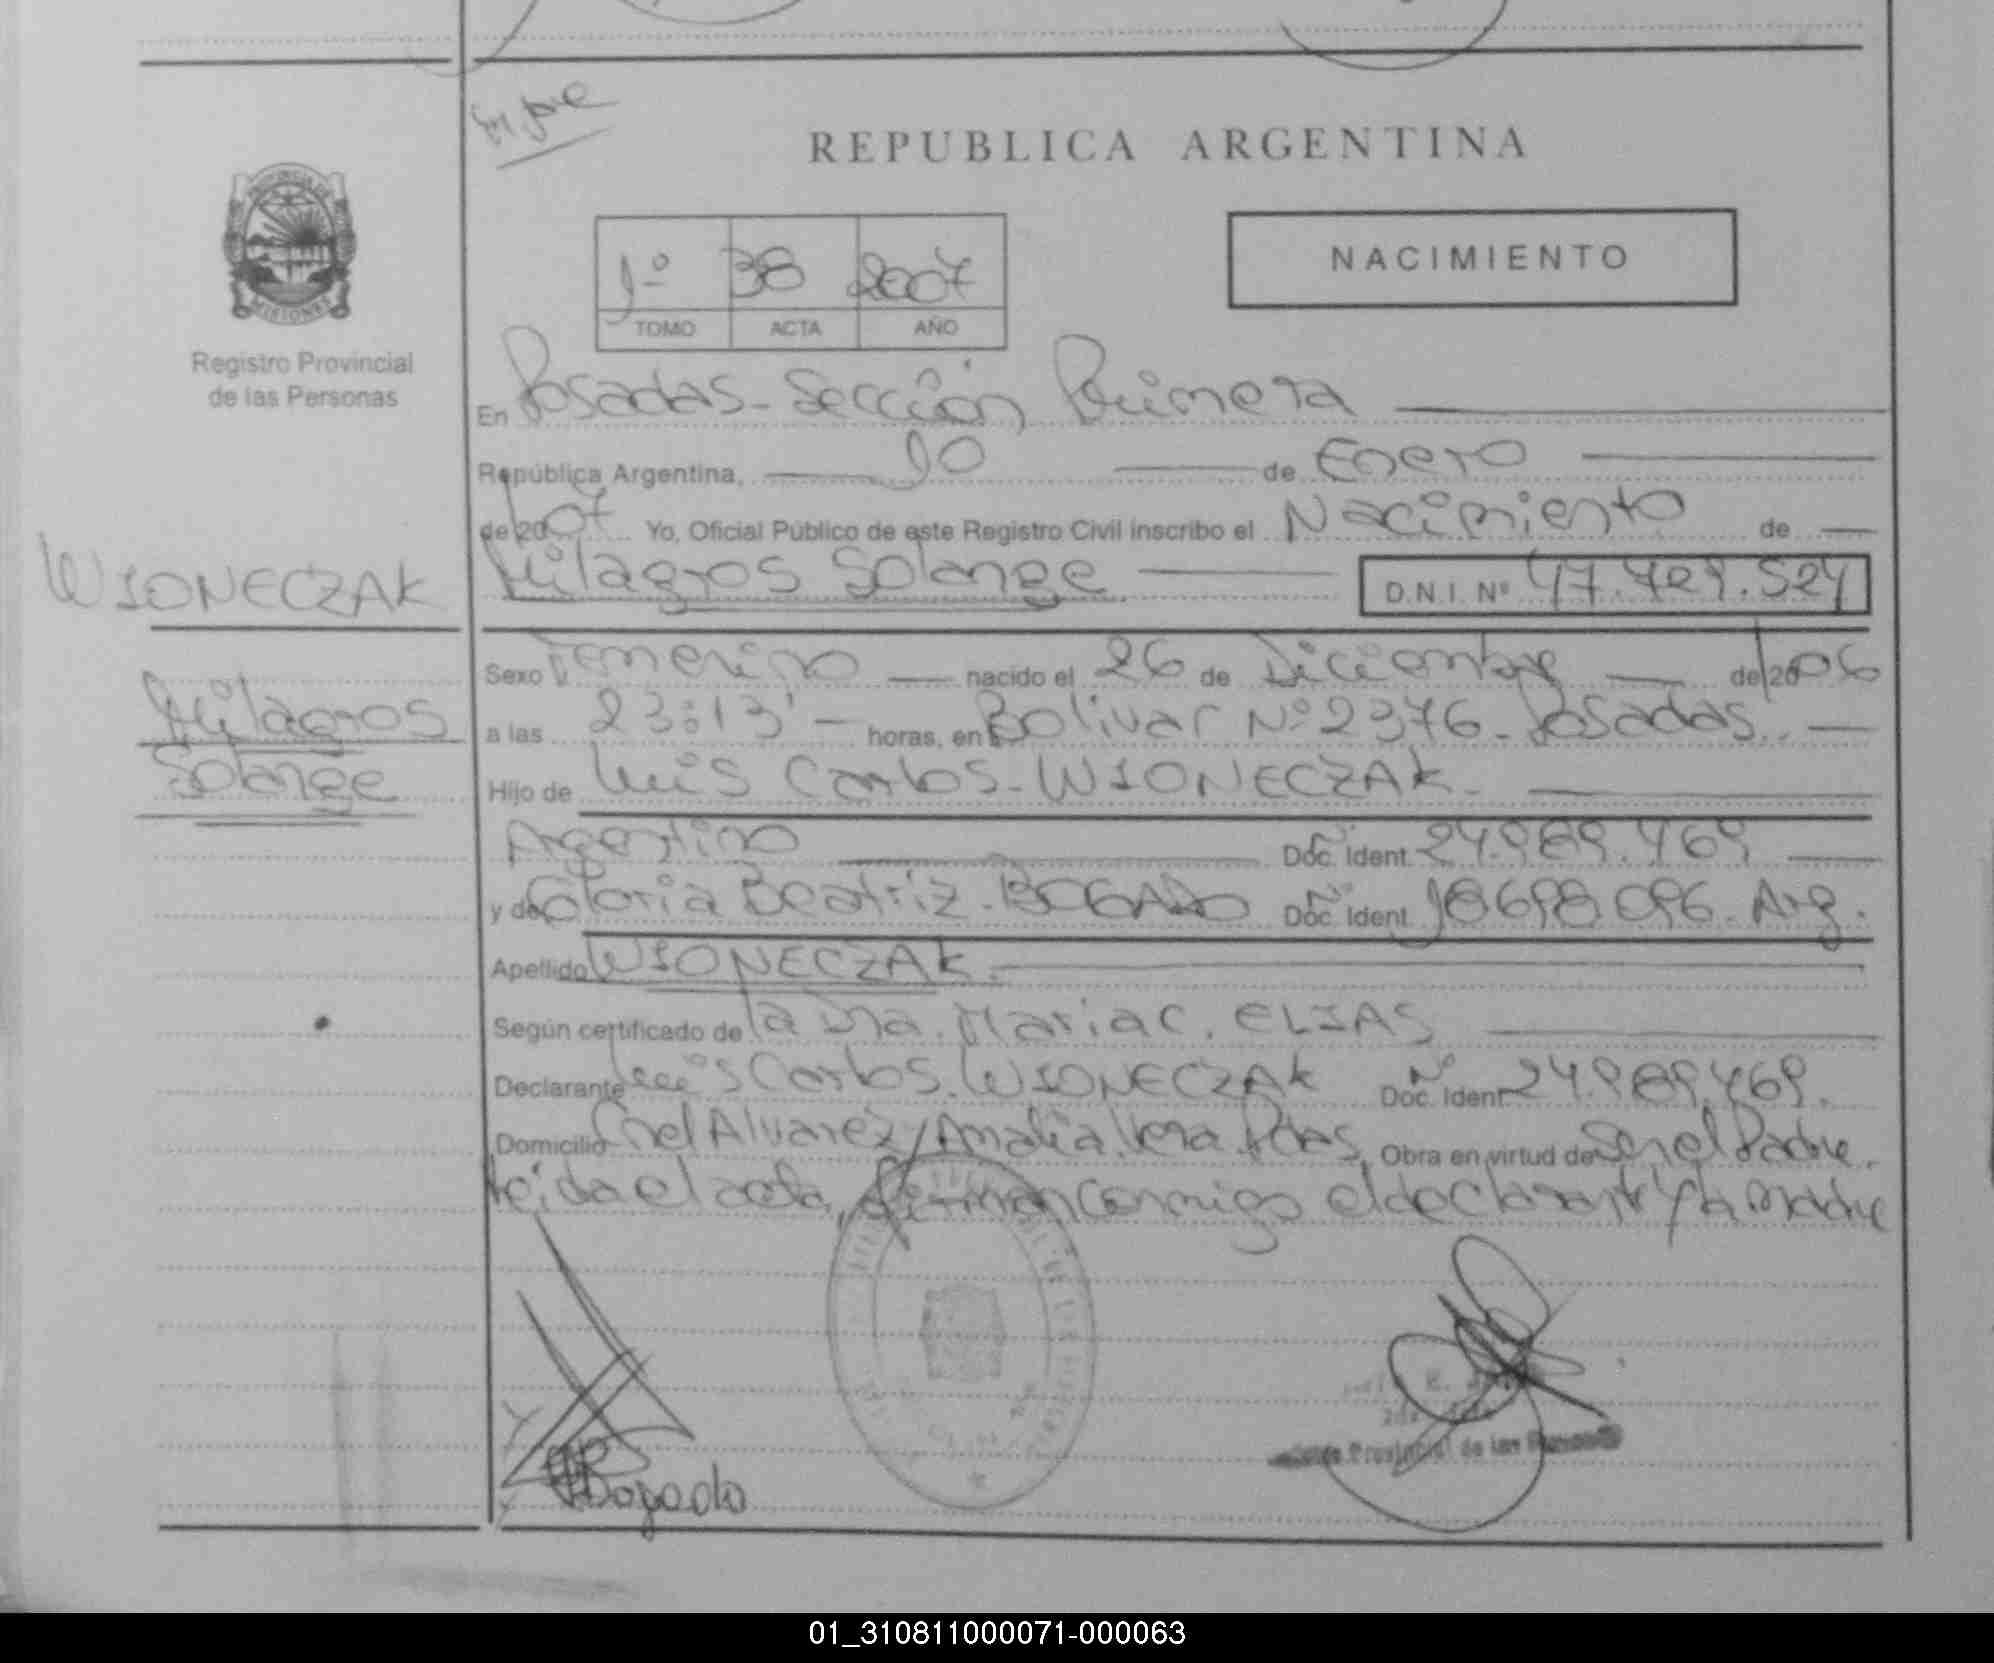 REPUBLICA ARGENTINA
PROVINCIA DE
MISIONES
Registro Provincial
de las Personas
NACIMIENTO
1º 38 2007
TOMO ACTA AÑO
En Posadas - Sección Primera
República Argentina, 10 de Enero
de 2007 Yo, Oficial Público de este Registro Civil inscribo el Nacimiento de
WIONECZAK
Milagros Solange D.N.I. Nº 47.429.524
Milagros
Solange
Sexo Femenino nacido el 26 de Diciembre de 2006
a las 23:13' horas, en Bolivar Nº 2376 - Posadas.
Hijo de Luis Carlos - WIONECZAK -
Argentino Nº Doc. Ident. 24.989.469
y de Gloria Beatriz - BOGADO Nº Doc. Ident. 18698.096. Arg.
Apellido WIONECZAK.
Según certificado de la Dra. Maria C. ELIAS
Declarante Luis Carlos. WIONECZAK Nº Doc. Ident. 24.989.469.
Domicilio Cnel Alvarez/Amalia Vera. Pdas, Obra en virtud de Ser el Padre.
Leida el acta, firman conmigo el declarante y la madre
Provincial de las Personas
Bogado
01_310811000071-000063